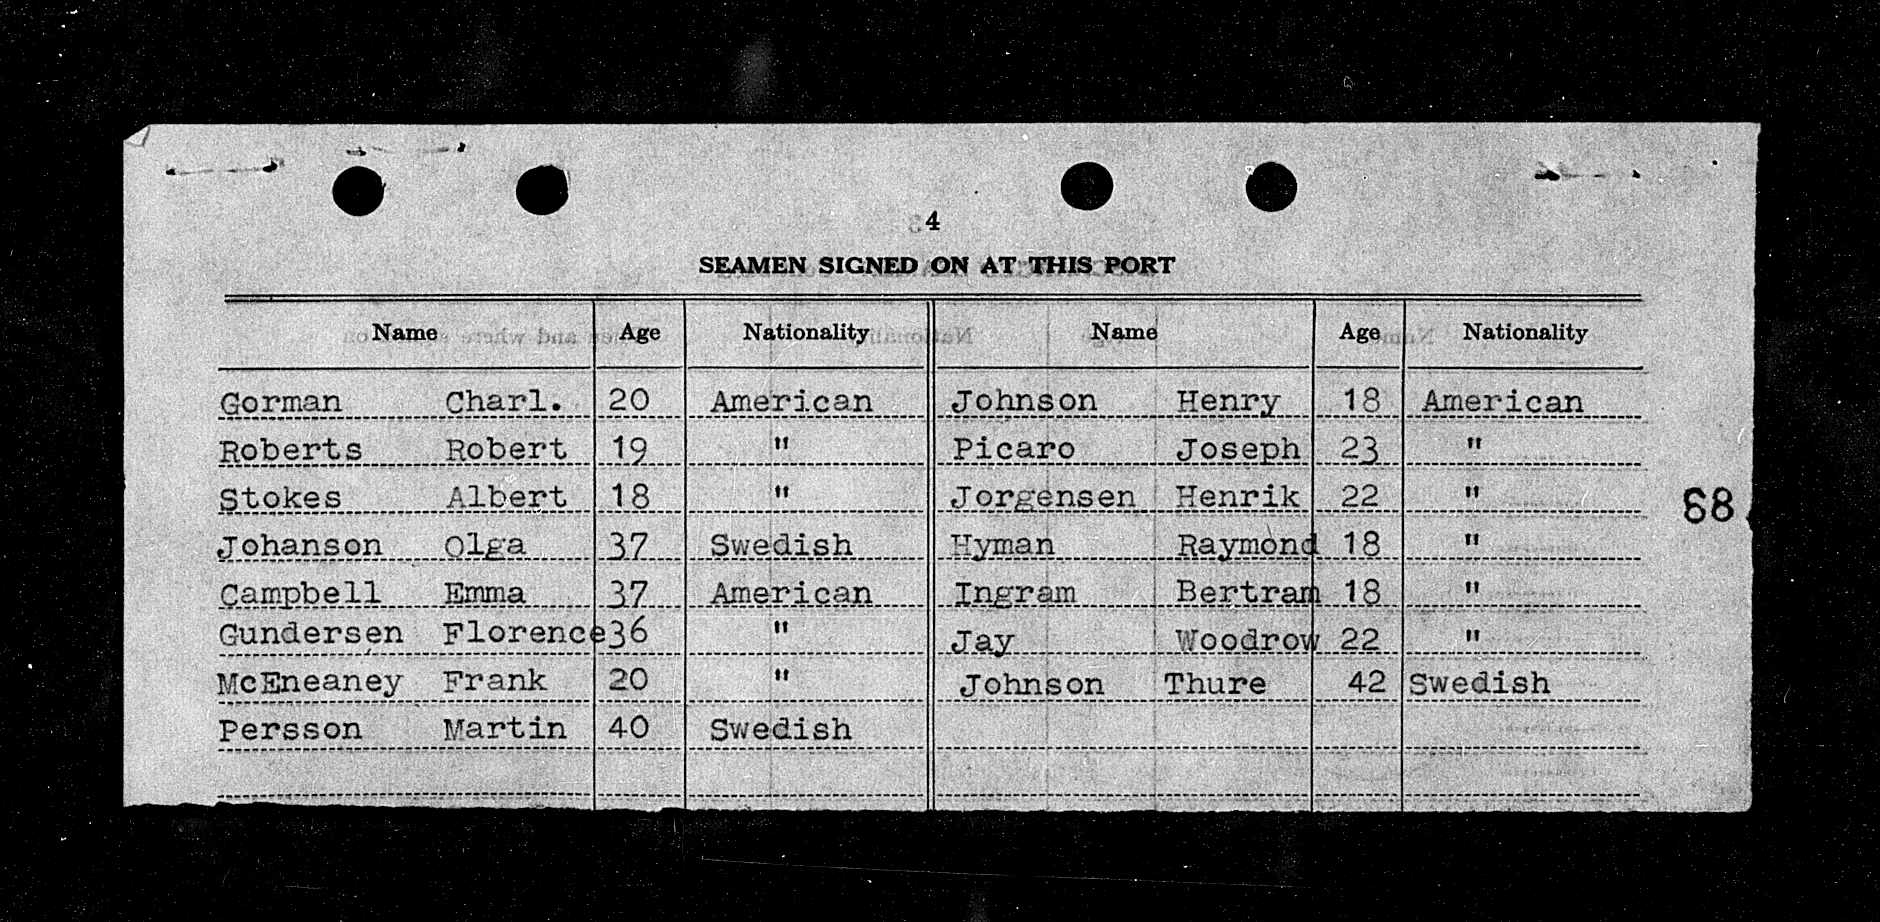 4
SEAMEN SIGNED ON AT THIS PORT
Name Age Nationality Name Age Nationality
Gorman Charl. 20 American Johnson Henry 18 American
Roberts Robert 19 " Picaro Joseph 23 "
Stokes Albert 18 " Jorgensen Henrik 22 "
Johanson Olga 37 Swedish Hyman Raymond 18 "
Campbell Emma 37 American Ingram Bertram 18 "
Gundersen Florence 36 " Jay Woodrow 22 "
McEneaney Frank 20 " Johnson Thure 42 Swedish
Persson Martin 40 Swedish
68